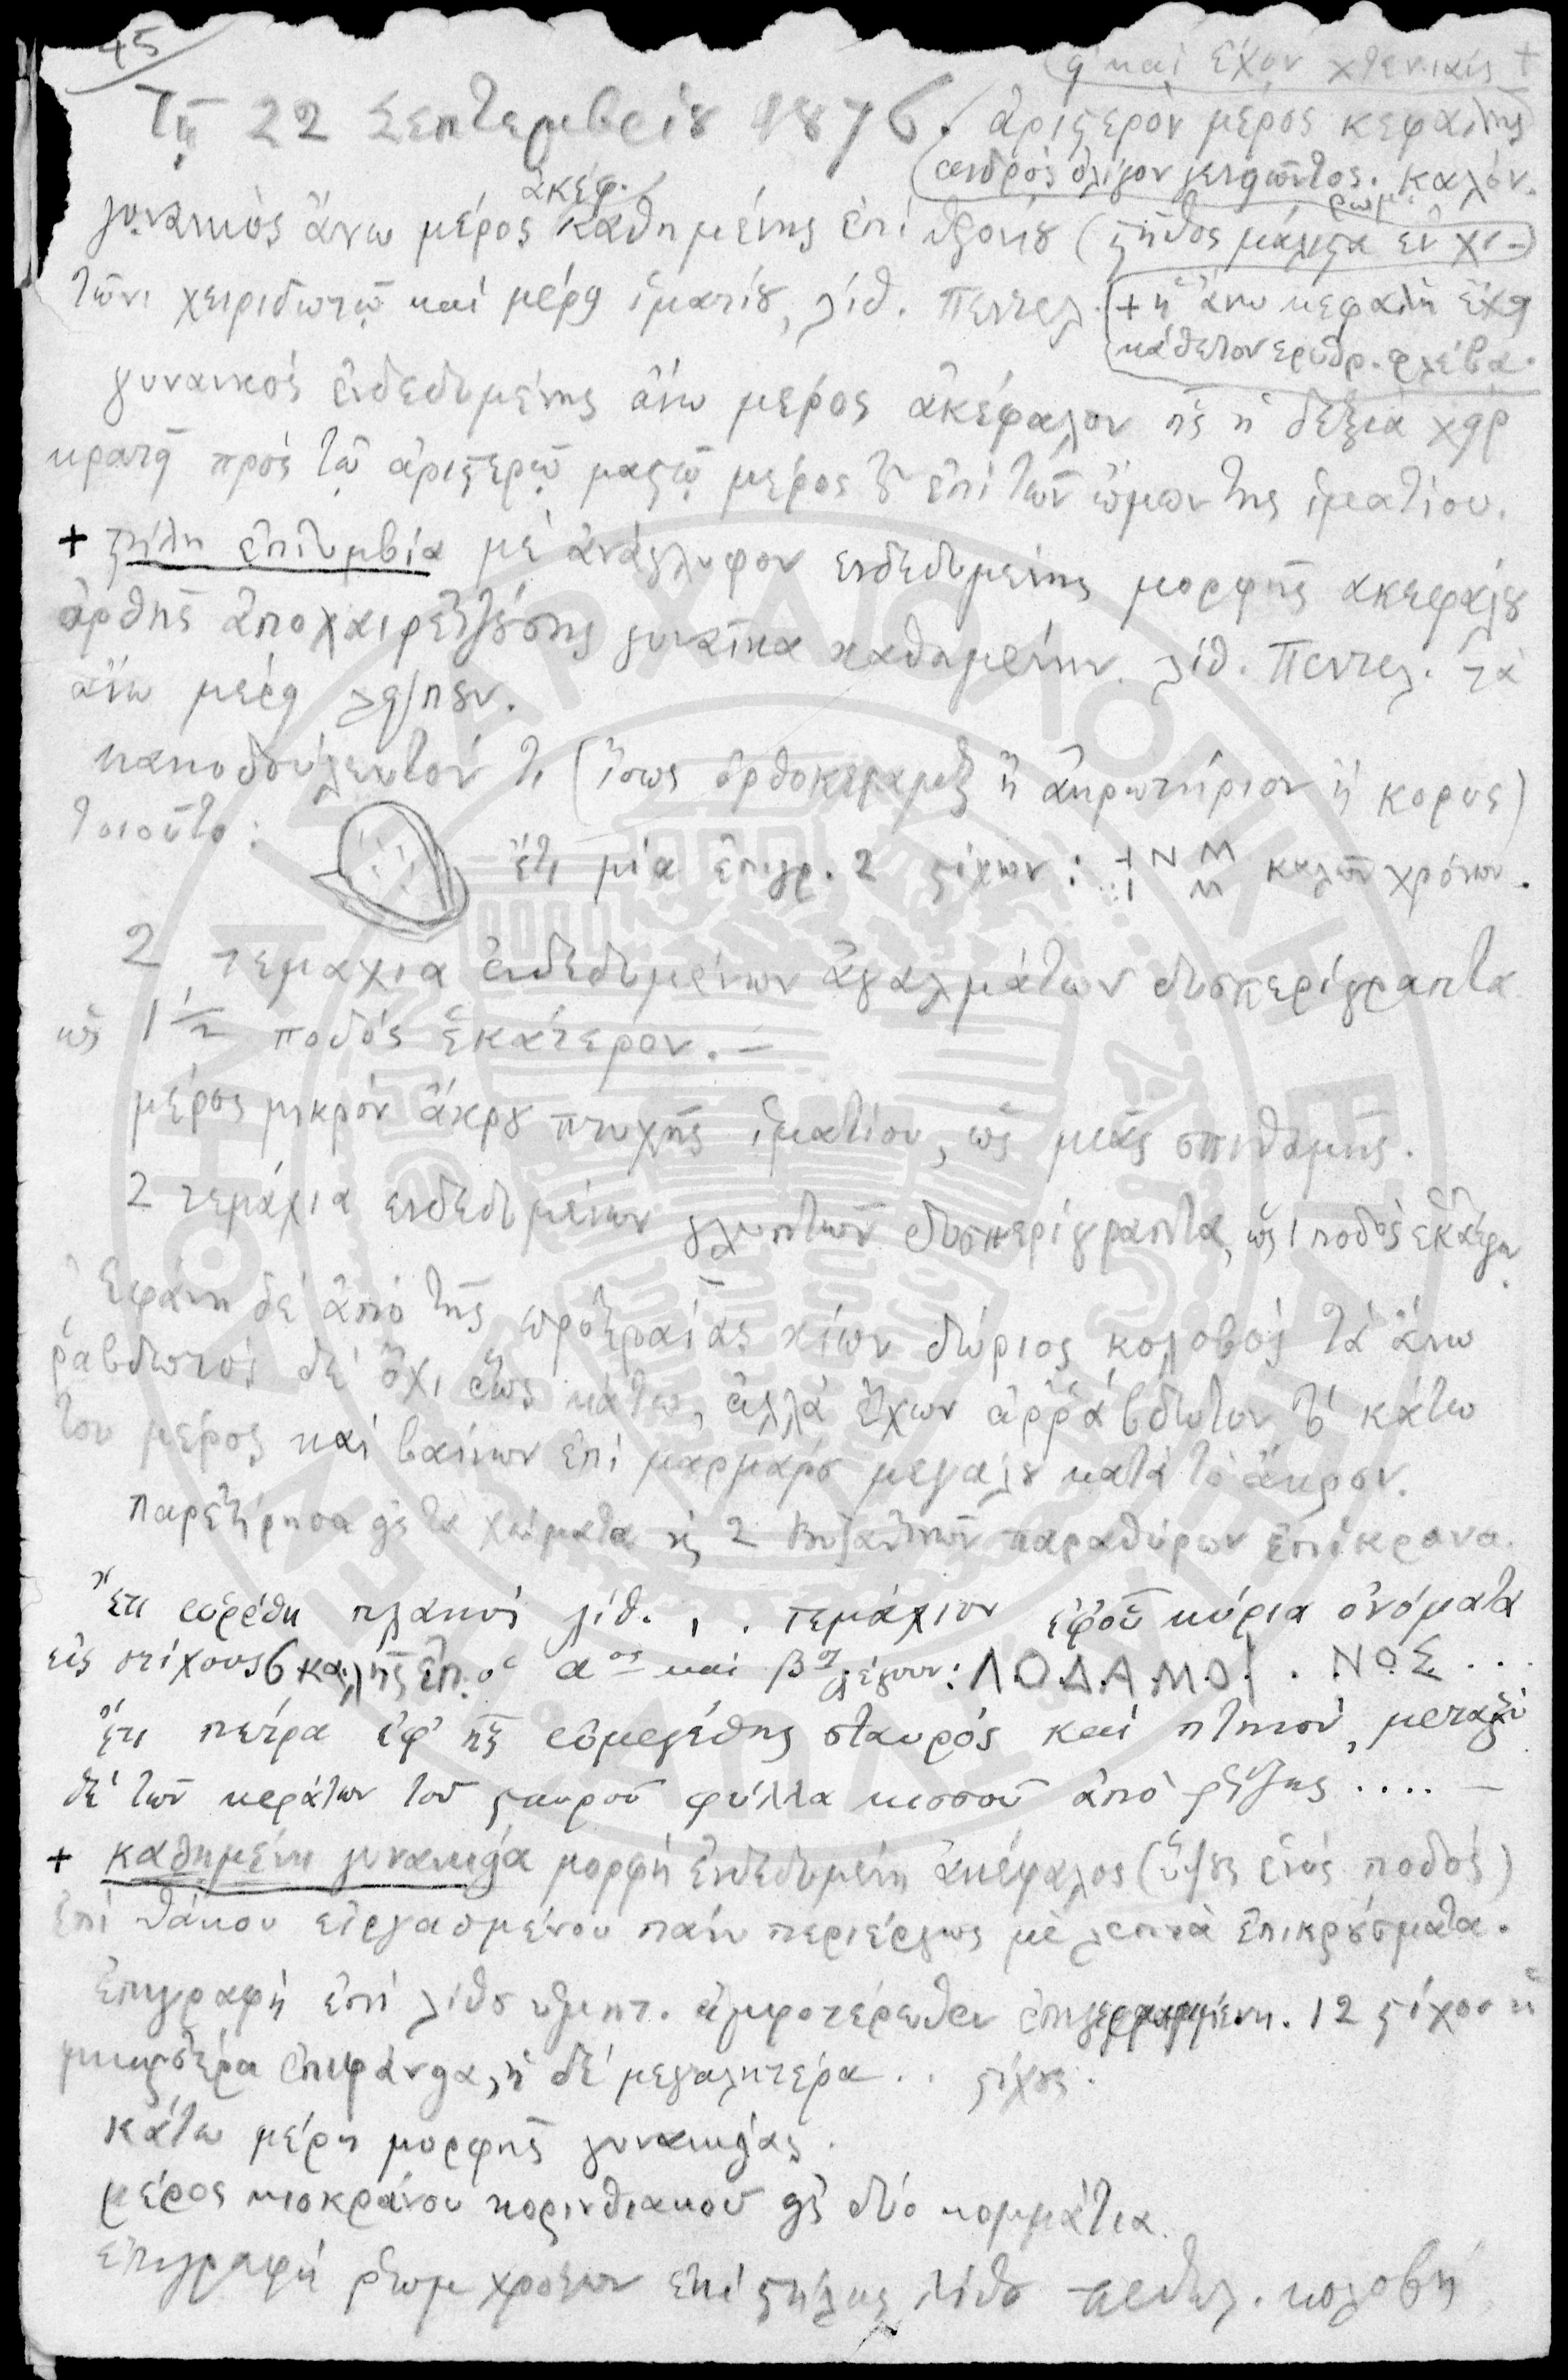 45
εἰ καὶ ἔχον +
Τῇ 22 Σεπτεμβρίου 1876.
ἀριστερὸν μέρος κεφαλῆς
ἀνδρὸς ὀλίγον καλόν.
ἀκέφ.
γυναικὸς ἄνω μέρος καθημένης ἐπὶ θρόνου (στῆθος μάλιστα ἐν χι-
τῶνι χειριδωτῷ καὶ μέρει ἱματίου, λίθ. Πεντελ.
+ ἡ ἄνω κεφαλὴ ἔχει
κάθετον ἐρυθρ. φλέβα.
γυναικὸς ἐνδεδυμένης ἄνω μέρος ἀκέφαλον ἧς ἡ δεξιὰ χεὶρ
κρατεῖ πρὸς τῷ ἀριστερῷ μαστῷ μέρος τοῦ ἐπὶ τῶν ὤμων της ἱματίου.
+ στήλη ἐπιτυμβία μὲ ἀνάγλυφον ἐνδεδυμένης μορφῆς ἀκεφάλου
ὀρθῆς ἀποχαιρετώσης γυναῖκα καθημένην. λίθ. Πεντελ. τὰ
ἄνω μέρη λείπουν.
κακοδούλευτόν τι (ἴσως ὀρθοκέραμος ἢ ἀκρωτήριον ἢ κορυς)
τοιοῦτο:
ἔτι μία ἐπιγρ. 2 στίχων: καλῶν χρόνων.
2 τεμάχια ἐνδεδυμένων ἀγαλμάτων δυσπερίγραπτα
ὡς 1 1/2 ποδὸς ἑκάτερον. –
μέρος μικρὸν ἄκρου πτυχῆς ἱματίου, ὡς μιᾶς σπιθαμῆς.
2 τεμάχια ἐνδεδυμένων γλυπτῶν δυσπερίγραπτα, ὡς 1 ποδὸς ἑκάτερον.
Ἐφάνη δὲ ἀπὸ τῆς προτεραίας κίων δώριος κολοβὸς τὰ ἄνω
ῥαβδωτὸς δὲ ὄχι ἕως κάτω, ἀλλὰ ἔχων ἀρράβδωτον τὸ κάτω
του μέρος καὶ βαίνων ἐπὶ μαρμάρου μεγάλου κατὰ τὸ ἄκρον.
Παρετήρησα εἰς τὰ χώματα κ 2 Βυζαντινῶν παραθύρων ἐπίκρανα.
Ἔτι εὑρέθη πλακὸς λίθ. . . τεμάχιον ἐφ' οὗ κύρια ὀνόματα
εἰς στίχους 6 καλῆς ἐπ. ὁ αος καὶ βος λέγουν: ΛΟΔΑΜΟΙ . . ΝΟΣ . . .
ἔτι πέτρα ἐφ' ἧς εὐμεγέθης σταυρὸς καὶ πτηνόν, μεταξὺ
δὲ τῶν κεράτων τοῦ σταυροῦ φύλλα κισσοῦ ἀπὸ ῥίζης .... –
+ καθημένη γυναικεία μορφὴ ἐνδεδυμένη ἀκέφαλος (ὕψους ἑνὸς ποδὸς)
ἐπὶ θάκου εἰργασμένου πάνυ περιέργως μὲ λεπτὰ ἐπικρούσματα.
ἐπιγραφὴ ἐπὶ λίθου ὑμηττ. ἀμφοτέρωθεν ἐπιγεγραμμένη. 12 στίχους ἡ
μικροτέρα ἐπιφάνεια, ἡ δὲ μεγαλητέρα . . στίχους.
κάτω μέρη μορφῆς γυναικείας.
μέρος κιοκράνου κορινθιακοῦ εἰς δύο κομμάτια.
ἐπιγραφὴ ῥωμ χρόνων ἐπὶ στήλης λίθου πεντελ. κολοβὴ